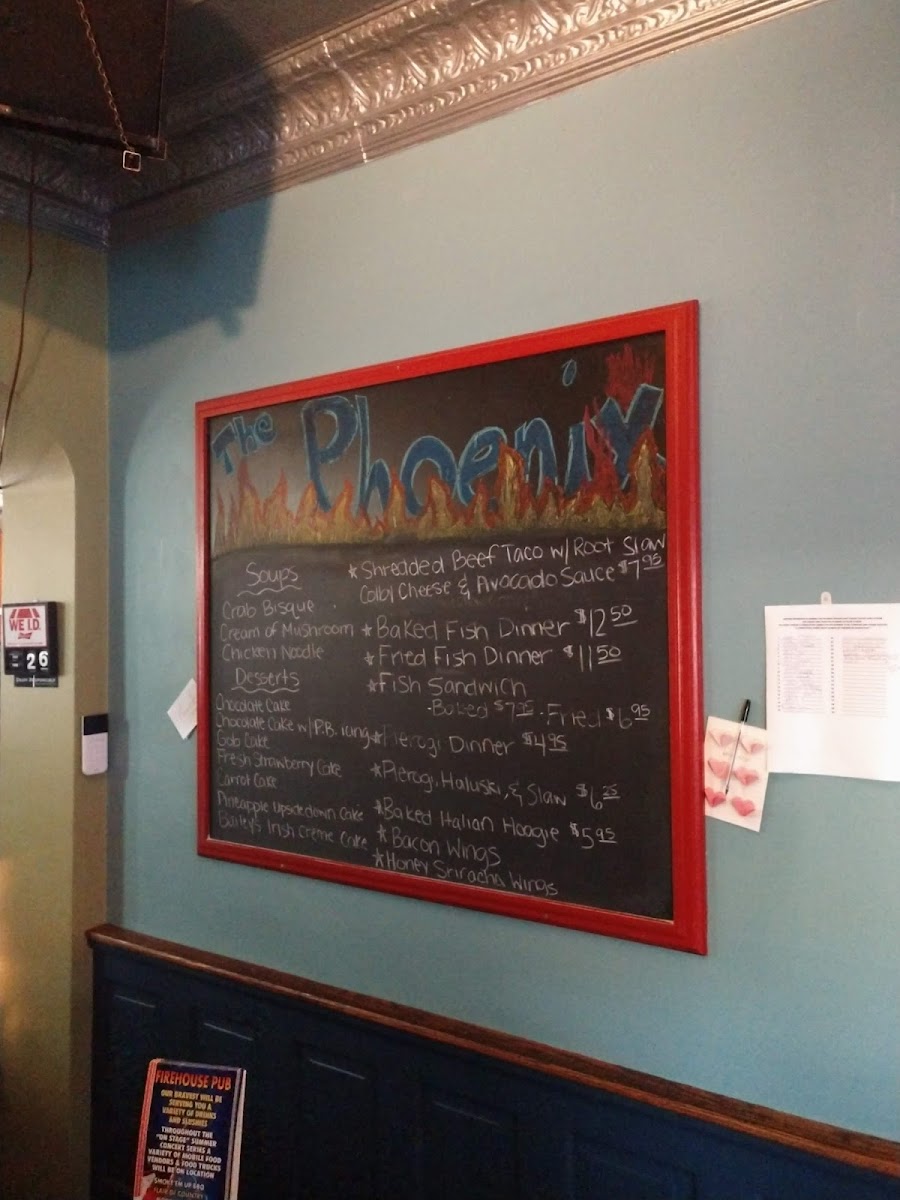 The Phoenix
Soups
Crab Bisque
Cream of Mushroom
Chicken Noodle
Desserts
Chocolate Cake
Chocolate Cake w/ P.B. icing
Gob Cake
Fresh Strawberry Cake
Carrot Cake
Pineapple Upsidedown Cake
Bailey's Irish Creme Cake
*Shredded Beef Taco w/ Root Slaw
Colbl Cheese & Avocado Sauce $7.95
*Baked Fish Dinner $12.50
*Fried Fish Dinner $11.50
*Fish Sandwich
-Baked $7.95 -Fried $6.95
*Pierogi Dinner $4.95
*Pierogi, Haluski, & Slaw $6.25
*Baked Italian Hoagie $5.95
*Bacon Wings
*Honey Sriracha Wings
WE I.D.
26
FIREHOUSE PUB
OUR BRAVEST WILL BE
SERVING YOU A
VARIETY OF DRINKS
AND SLUSHIES
THROUGHOUT THE
"ON STAGE" SUMMER
CONCERT SERIES A
VARIETY OF MOBILE FOOD
VENDORS & FOOD TRUCKS
WILL BE ON LOCATION
SMOKE 'EM UP BBQ
FLAIR OF COUNTRY'S